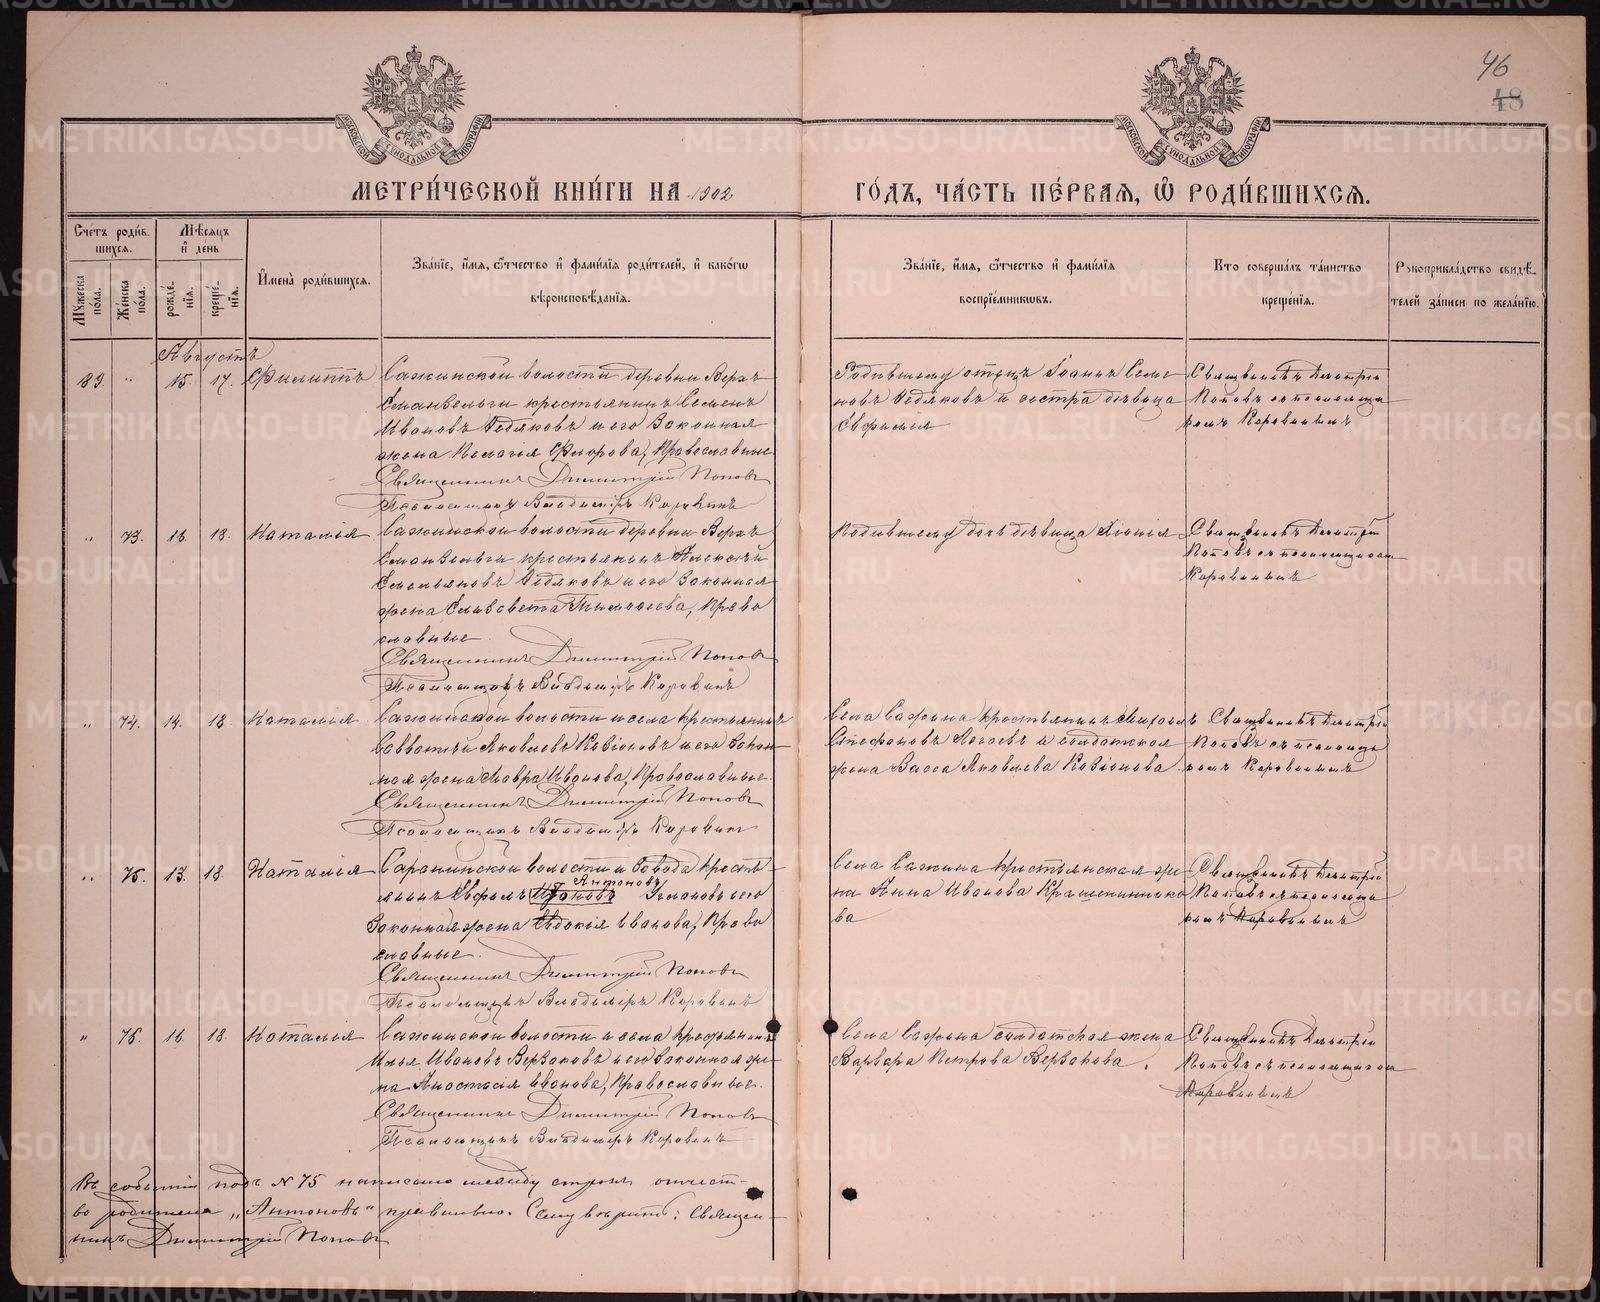 46
48
МОСКОВСКОЙ СѴНОДАЛЬНОЙ ТИПОГРАФІИ
МОСКОВСКОЙ СѴНОДАЛЬНОЙ ТИПОГРАФІИ
МЕТРИ́ЧЕСКОЙ КНИ́ГИ НА 1902
ГО́ДЪ, ЧА́СТЬ ПЕ́РВАЯ, Ѽ РОДИ́ВШИХСЯ.
Сче́тъ роди́вшихся.
Мꙋ́жеска по́ла.
Же́нска по́ла.
Мѣ́сяцъ и҆ де́нь
рожде́нія.
креще́нія.
И҆мена̀ роди́вшихся.
Зва́ніе, и҆́мя, ѻ҆́тчество и҆ фами́лія роди́телей, и҆ како́гѡ
вѣроисповѣ́данія.
Зва́ніе, и҆́мя, ѻ҆́тчество и҆ фами́лія
воспріе́мниковъ.
Кто̀ соверша́лъ та́инство
креще́нія.
Рꙋкоприкла́дство свидѣ́телей за́писи по жела́нію.
Августъ
89. " 15. 17. Филиппъ
Сажинской волости деревни Верхъ
крестьянинъ Семенъ
Ивановъ Федяковъ и его законная
жена Пелагія Флорова, Православные.
Священникъ Димитрій Поповъ
Псаломщикъ Владиміръ Коровинъ
Родившему отецъ Іоаннъ Семе-
новъ Федяковъ и сестра дѣвица
Евфимія
Священникъ Димитрій
Поповъ съ псаломщи-
комъ Коровинымъ
" 73. 16. 18. Наталія
Сажинской волости деревни Верхъ
крестьянинъ Алексѣй
Емельяновъ Федяковъ и его законная
жена Елисавета Тимофеева, Право
славные.
Священникъ Димитрій Поповъ
Псаломщикъ Владиміръ Коровинъ
дочь дѣвица
Священникъ Димитрій
Поповъ съ псаломщикомъ
Коровинымъ
" 74. 14. 18. Наталія
Сажинской волости и села крестьянинъ
Савватій Яковлевъ и его закон-
ная жена Мавра Иванова, Православные.
Священникъ Димитрій Поповъ
Псаломщикъ Владиміръ Коровинъ
Села Сажина крестьянинъ Михаилъ
Стефановъ и солдатская
жена Васса Яковлева
Священникъ Димитрій
Поповъ съ псаломщи-
комъ Коровинымъ
" 75. 13. 18. Наталія
Саранинской волости и завода кресть-
Антоновъ
янинъ (Ивановъ) и его
законная жена Евдокія Иванова, Право
славные.
Священникъ Димитрій Поповъ
Псаломщикъ Владиміръ Коровинъ
Села Сажина крестьянская же-
на Анна Иванова Крашенинико
ва
Священникъ Димитрій
Поповъ съ псаломщи-
комъ Коровинымъ
" 76. 16. 18. Наталія
Сажинской волости и села крестьянинъ
Илья Ивановъ Верзаковъ и его законная же-
на Анастасія Иванова, Православные.
Священникъ Димитрій Поповъ
Псаломщикъ Владиміръ Коровинъ
Села Сажина солдатская жена
Варвара Петрова Верзакова.
Священникъ Димитрій
Поповъ съ псаломщикомъ
Коровинымъ
Въ событіи подъ № 75 написано между строкъ отчест-
во родителя „Антоновъ" правильно. Сему вѣрить: Священ-
никъ Димитрій Поповъ
METRIKI.GASO-URAL.RU